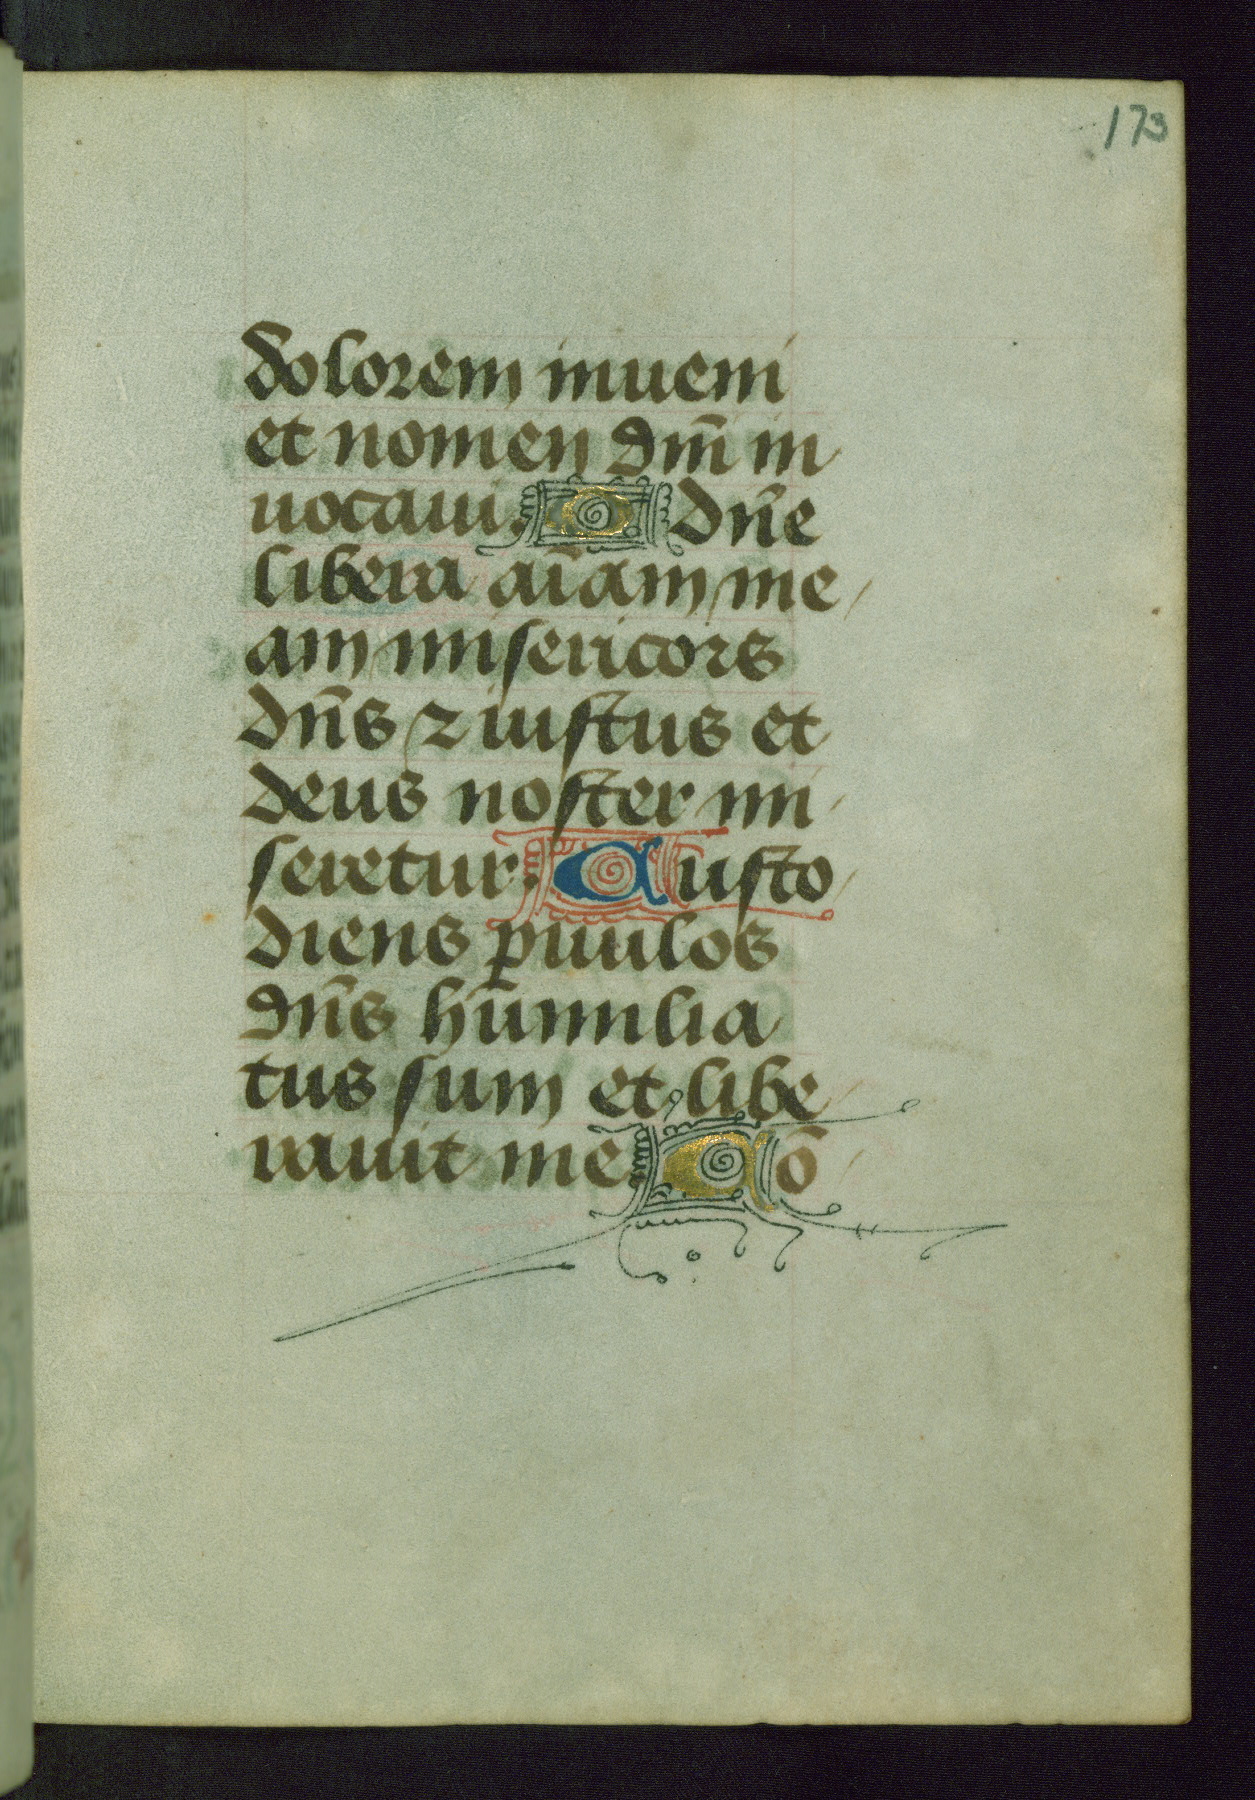 173
dolorem inueni
et nomen dm̄ in
uocaui. O dn̄e
libera aīam me
am misericors
dn̄s ⁊ iustus et
deus noster mi
seretur. Custo
diens ꝑuulos
dn̄s hūmilia
tus sum et libe
rauit me. Cō